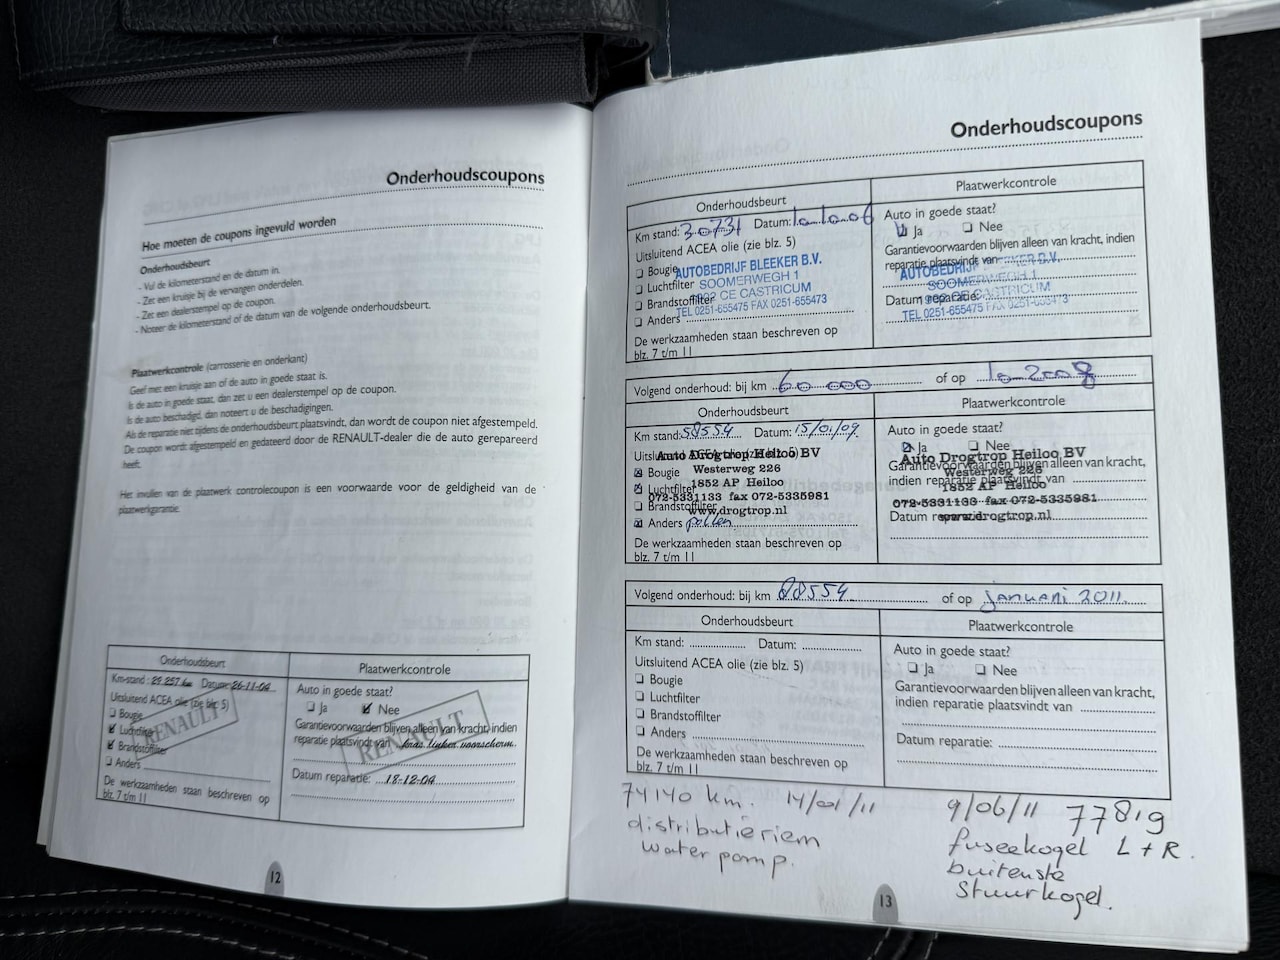 Onderhoudscoupons
Hoe moeten de coupons ingevuld worden
Onderhoudsbeurt
- Vul de kilometerstand en de datum in.
- Zet een kruisje bij de vervangen onderdelen.
- Zet een dealerstempel op de coupon.
- Noteer de kilometerstand of de datum van de volgende onderhoudsbeurt.
Plaatwerkcontrole (carrosserie en onderkant)
Geef met een kruisje aan of de auto in goede staat is.
Is de auto in goede staat, dan zet u een dealerstempel op de coupon.
Is de auto beschadigd, dan noteert u de beschadigingen.
Als de reparatie niet tijdens de onderhoudsbeurt plaatsvindt, dan wordt de coupon niet afgestempeld.
De coupon wordt afgestempeld en gedateerd door de RENAULT-dealer die de auto gerepareerd
heeft.
Het invullen van de plaatwerk controlecoupon is een voorwaarde voor de geldigheid van de
plaatwerkgarantie.
Onderhoudsbeurt
Km-stand: 29.257 km Datum: 26-11-04
Uitsluitend ACEA olie (zie blz. 5)
Bougie
Luchtfilter
Brandstoffilter
Anders
De werkzaamheden staan beschreven op
blz. 7 t/m 11
RENAULT
Plaatwerkcontrole
Auto in goede staat?
Ja Nee
Garantievoorwaarden blijven alleen van kracht, indien
reparatie plaatsvindt van kras linker voorscherm.
Datum reparatie: 18-12-04
RENAULT
12
Onderhoudscoupons
Onderhoudsbeurt
Km stand: 30731 Datum: 10.10.06
Uitsluitend ACEA olie (zie blz. 5)
Bougie
Luchtfilter
Brandstoffilter
Anders
AUTOBEDRIJF BLEEKER B.V.
SOOMERWEGH 1
1902 CE CASTRICUM
TEL 0251-655475 FAX 0251-655473
De werkzaamheden staan beschreven op
blz. 7 t/m 11
Plaatwerkcontrole
Auto in goede staat?
Ja Nee
Garantievoorwaarden blijven alleen van kracht, indien
reparatie plaatsvindt van
Datum reparatie:
AUTOBEDRIJF BLEEKER B.V.
SOOMERWEGH 1
1902 CE CASTRICUM
TEL 0251-655475 FAX 0251-655473
Volgend onderhoud: bij km 60 000 of op 10-2008
Onderhoudsbeurt
Km stand: 58554 Datum: 15/01/09
Uitsluitend ACEA olie (zie blz. 5)
Bougie
Luchtfilter
Brandstoffilter
Anders pollen
Auto Drogtrop Heiloo BV
Westerweg 226
1852 AP Heiloo
072-5331133 fax 072-5335981
www.drogtrop.nl
De werkzaamheden staan beschreven op
blz. 7 t/m 11
Plaatwerkcontrole
Auto in goede staat?
Ja Nee
Garantievoorwaarden blijven alleen van kracht,
indien reparatie plaatsvindt van
Datum reparatie:
Auto Drogtrop Heiloo BV
Westerweg 226
1852 AP Heiloo
072-5331133 fax 072-5335981
www.drogtrop.nl
Volgend onderhoud: bij km 88554 of op januari 2011.
Onderhoudsbeurt
Km stand: Datum:
Uitsluitend ACEA olie (zie blz. 5)
Bougie
Luchtfilter
Brandstoffilter
Anders
De werkzaamheden staan beschreven op
blz. 7 t/m 11
Plaatwerkcontrole
Auto in goede staat?
Ja Nee
Garantievoorwaarden blijven alleen van kracht,
indien reparatie plaatsvindt van
Datum reparatie:
74140 km. 14/01/11
distributieriem
waterpomp.
9/06/11 77819
fuseekogel L + R.
buitenste
Stuurkogel.
13